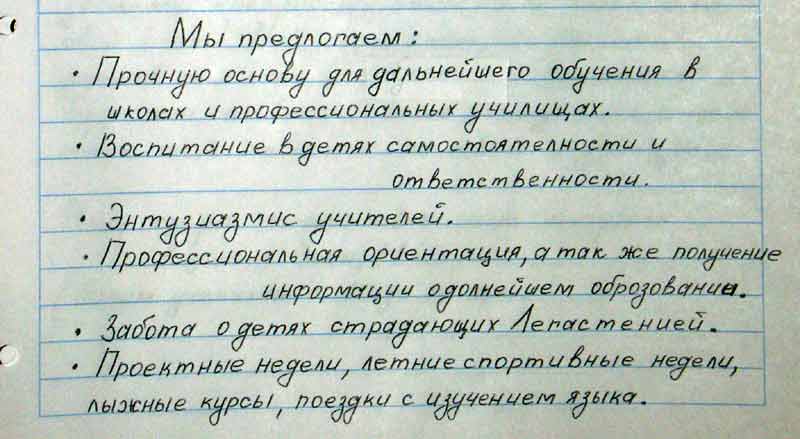 Мы предлогаем:
• Прочную основу для дальнейшего обучения в
школах и профессиональных училищах.
• Воспитание в детях самостоятелности и
ответственности.
• Энтузиазмис учителей.
• Профессиональная ориентация, а так же получение
информации о долнейшем оброзовании.
• Забота о детях страдающих Легастенией.
• Проектные недели, летние спортивные недели,
лыжные курсы, поездки с изучением языка.